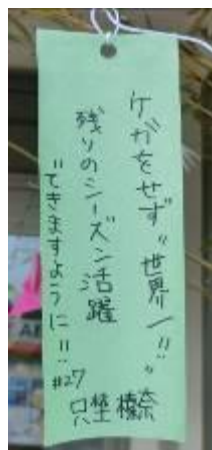 ケガをせず〃世界一!!〃
残りのシーズン活躍
できますように!!
#27
只埜榛奈